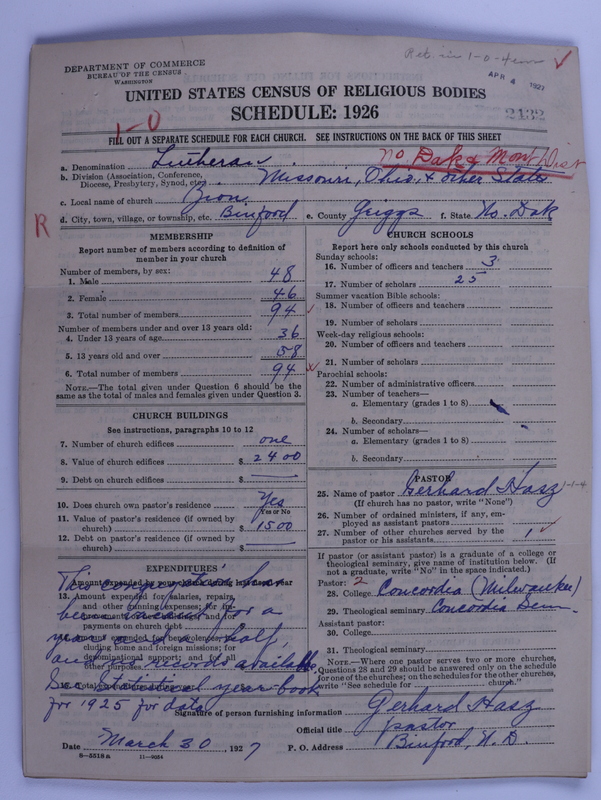 Ret. in 1-0-4
DEPARTMENT OF COMMERCE
BUREAU OF THE CENSUS
WASHINGTON
APR 4 1927
UNITED STATES CENSUS OF RELIGIOUS BODIES
SCHEDULE: 1926
2132
1-0
FILL OUT A SEPARATE SCHEDULE FOR EACH CHURCH. SEE INSTRUCTIONS ON THE BACK OF THIS SHEET
a. Denomination Lutheran. No. Dak & Mont Dist
b. Division (Association, Conference, Diocese, Presbytery, Synod, etc) Missouri, Ohio, & other States
c. Local name of church Zion.
d. City, town, village, or township, etc. Binford e. County Griggs f. State No. Dak
R
MEMBERSHIP
Report number of members according to definition of
member in your church
Number of members, by sex:
1. Male 48
2. Female 46
3. Total number of members 94
Number of members under and over 13 years old:
4. Under 13 years of age 36
5. 13 years old and over 58
6. Total number of members 94
NOTE.—The total given under Question 6 should be the
same as the total of males and females given under Question 3.
CHURCH BUILDINGS
See instructions, paragraphs 10 to 12
7. Number of church edifices one
8. Value of church edifices $ 2400
9. Debt on church edifices $
10. Does church own pastor's residence Yes
Yes or No
11. Value of pastor's residence (if owned by
church) $ 1500
12. Debt on pastor's residence (if owned by
church) $
EXPENDITURES
Amount expended by your church during last fiscal year
13. Amount expended for salaries, repairs,
and other running expenses; for
improvements; and for
payments on church debt
14. Amount expended for benevolences, including
home and foreign missions; for
denominational support; and for all
other purposes
15. Total
This congregation has
been vacant for a
year and a half,
and no records available
See Statistical year book
for 1925 for data
CHURCH SCHOOLS
Report here only schools conducted by this church
Sunday schools:
16. Number of officers and teachers 3
17. Number of scholars 25
Summer vacation Bible schools:
18. Number of officers and teachers
19. Number of scholars
Week-day religious schools:
20. Number of officers and teachers
21. Number of scholars
Parochial schools:
22. Number of administrative officers
23. Number of teachers—
a. Elementary (grades 1 to 8)
b. Secondary
24. Number of scholars—
a. Elementary (grades 1 to 8)
b. Secondary
PASTOR
25. Name of pastor Gerhard Hasz 1-1-4
(If church has no pastor, write "None")
26. Number of ordained ministers, if any, employed
as assistant pastors
27. Number of other churches served by the
pastor or his assistants 1
If pastor (or assistant pastor) is a graduate of a college or
theological seminary, give name of institution below. (If
not a graduate, write "No" in the space indicated.)
Pastor: 2
28. College Concordia (Milwaukee)
29. Theological seminary Concordia Sem.
Assistant pastor:
30. College
31. Theological seminary
NOTE.—Where one pastor serves two or more churches,
Questions 28 and 29 should be answered only on the schedule
for one of the churches; on the schedules for the other churches,
write "See schedule for church."
Signature of person furnishing information Gerhard Hasz
Official title pastor
Date March 30 1927 P. O. Address Binford, N. D.
8—5518 a 11—9054